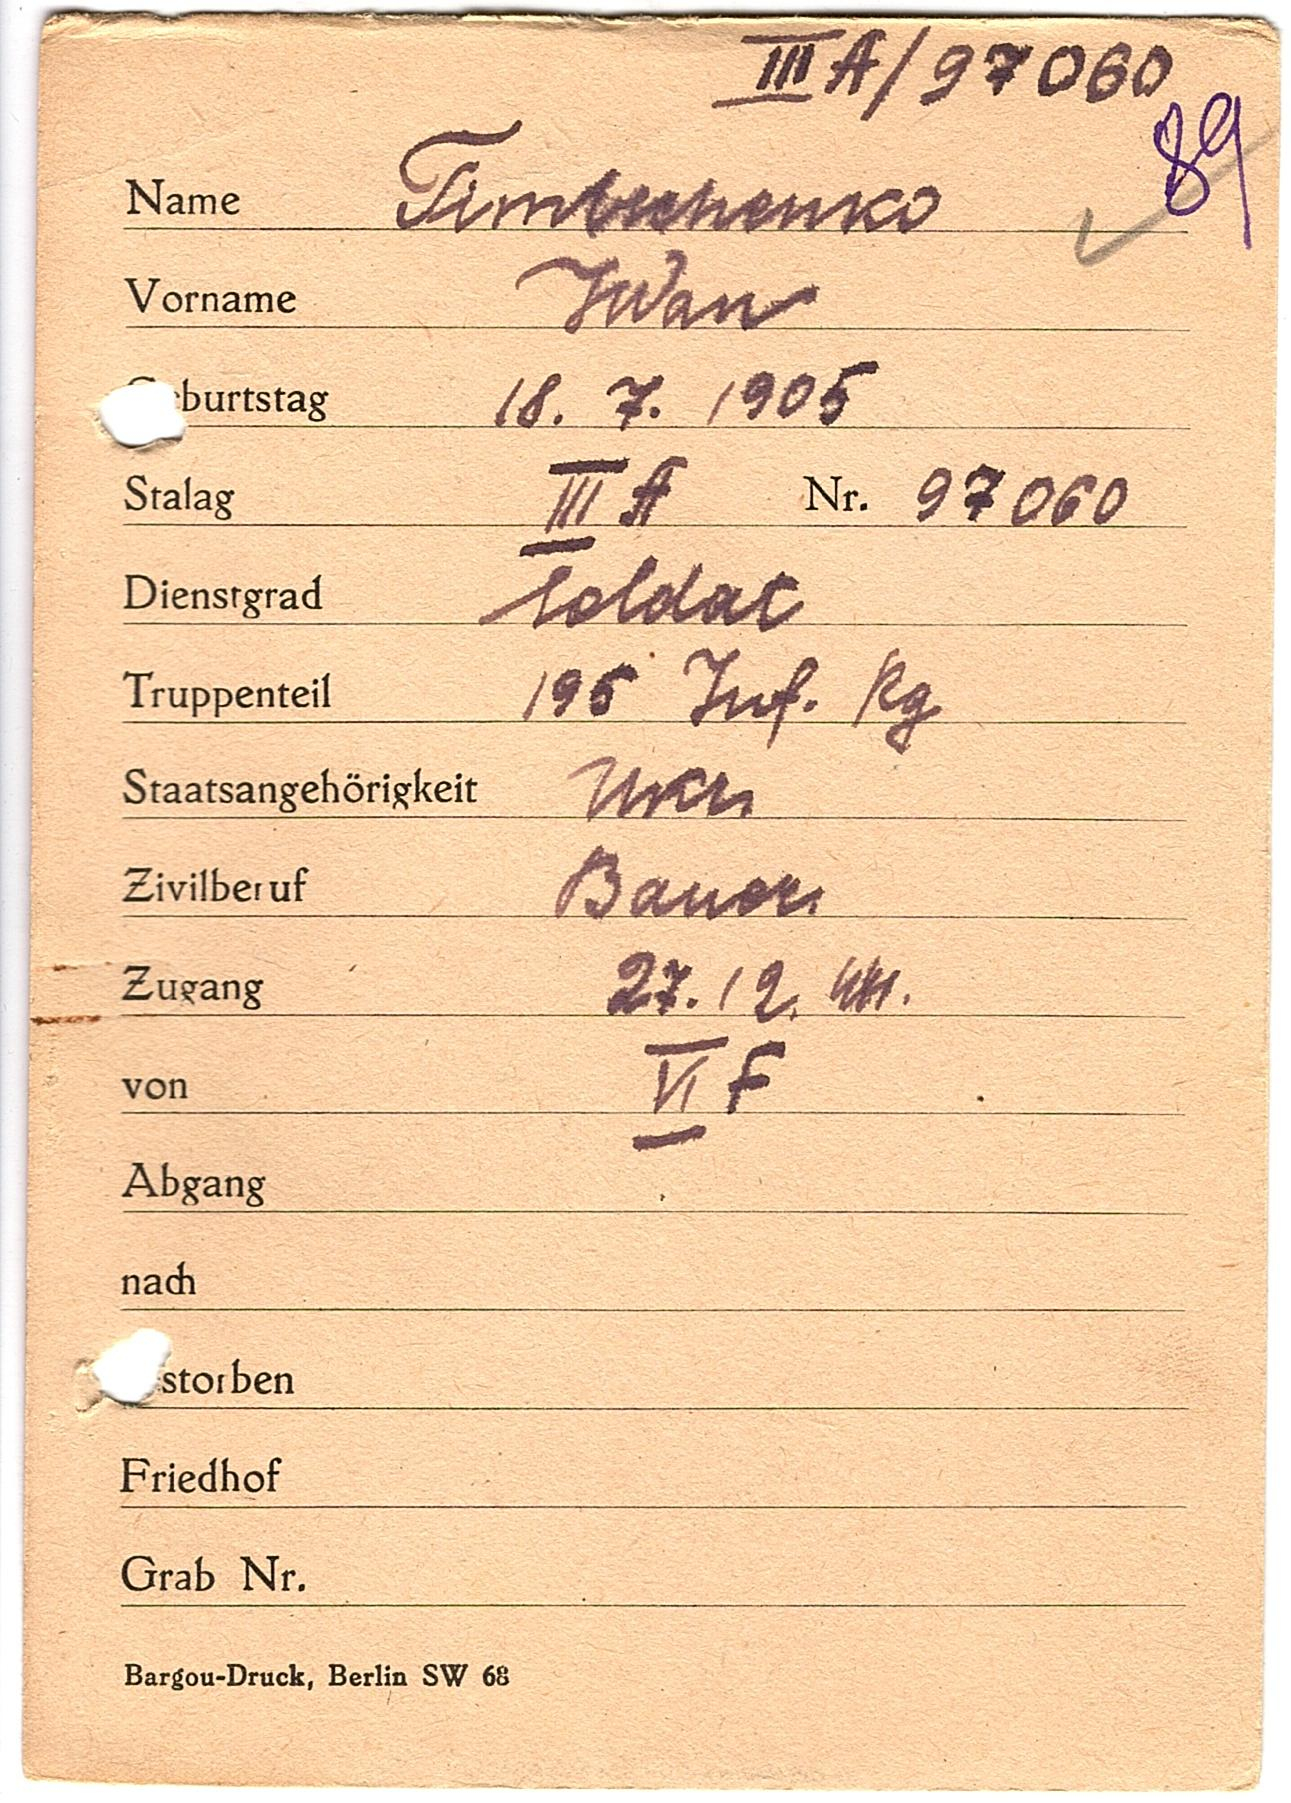 III A/97060
89
Name Timtschenko
Vorname Iwan
burtstag 18. 7. 1905
Stalag III A Nr. 97060
Dienstgrad Soldat
Truppenteil 195 Inf. Rg
Staatsangehörigkeit Ukr.
Zivilberuf Bauer
Zugang 27. 12. 44.
von VI F
Abgang
nach
storben
Friedhof
Grab Nr.
Bargou-Druck, Berlin SW 68